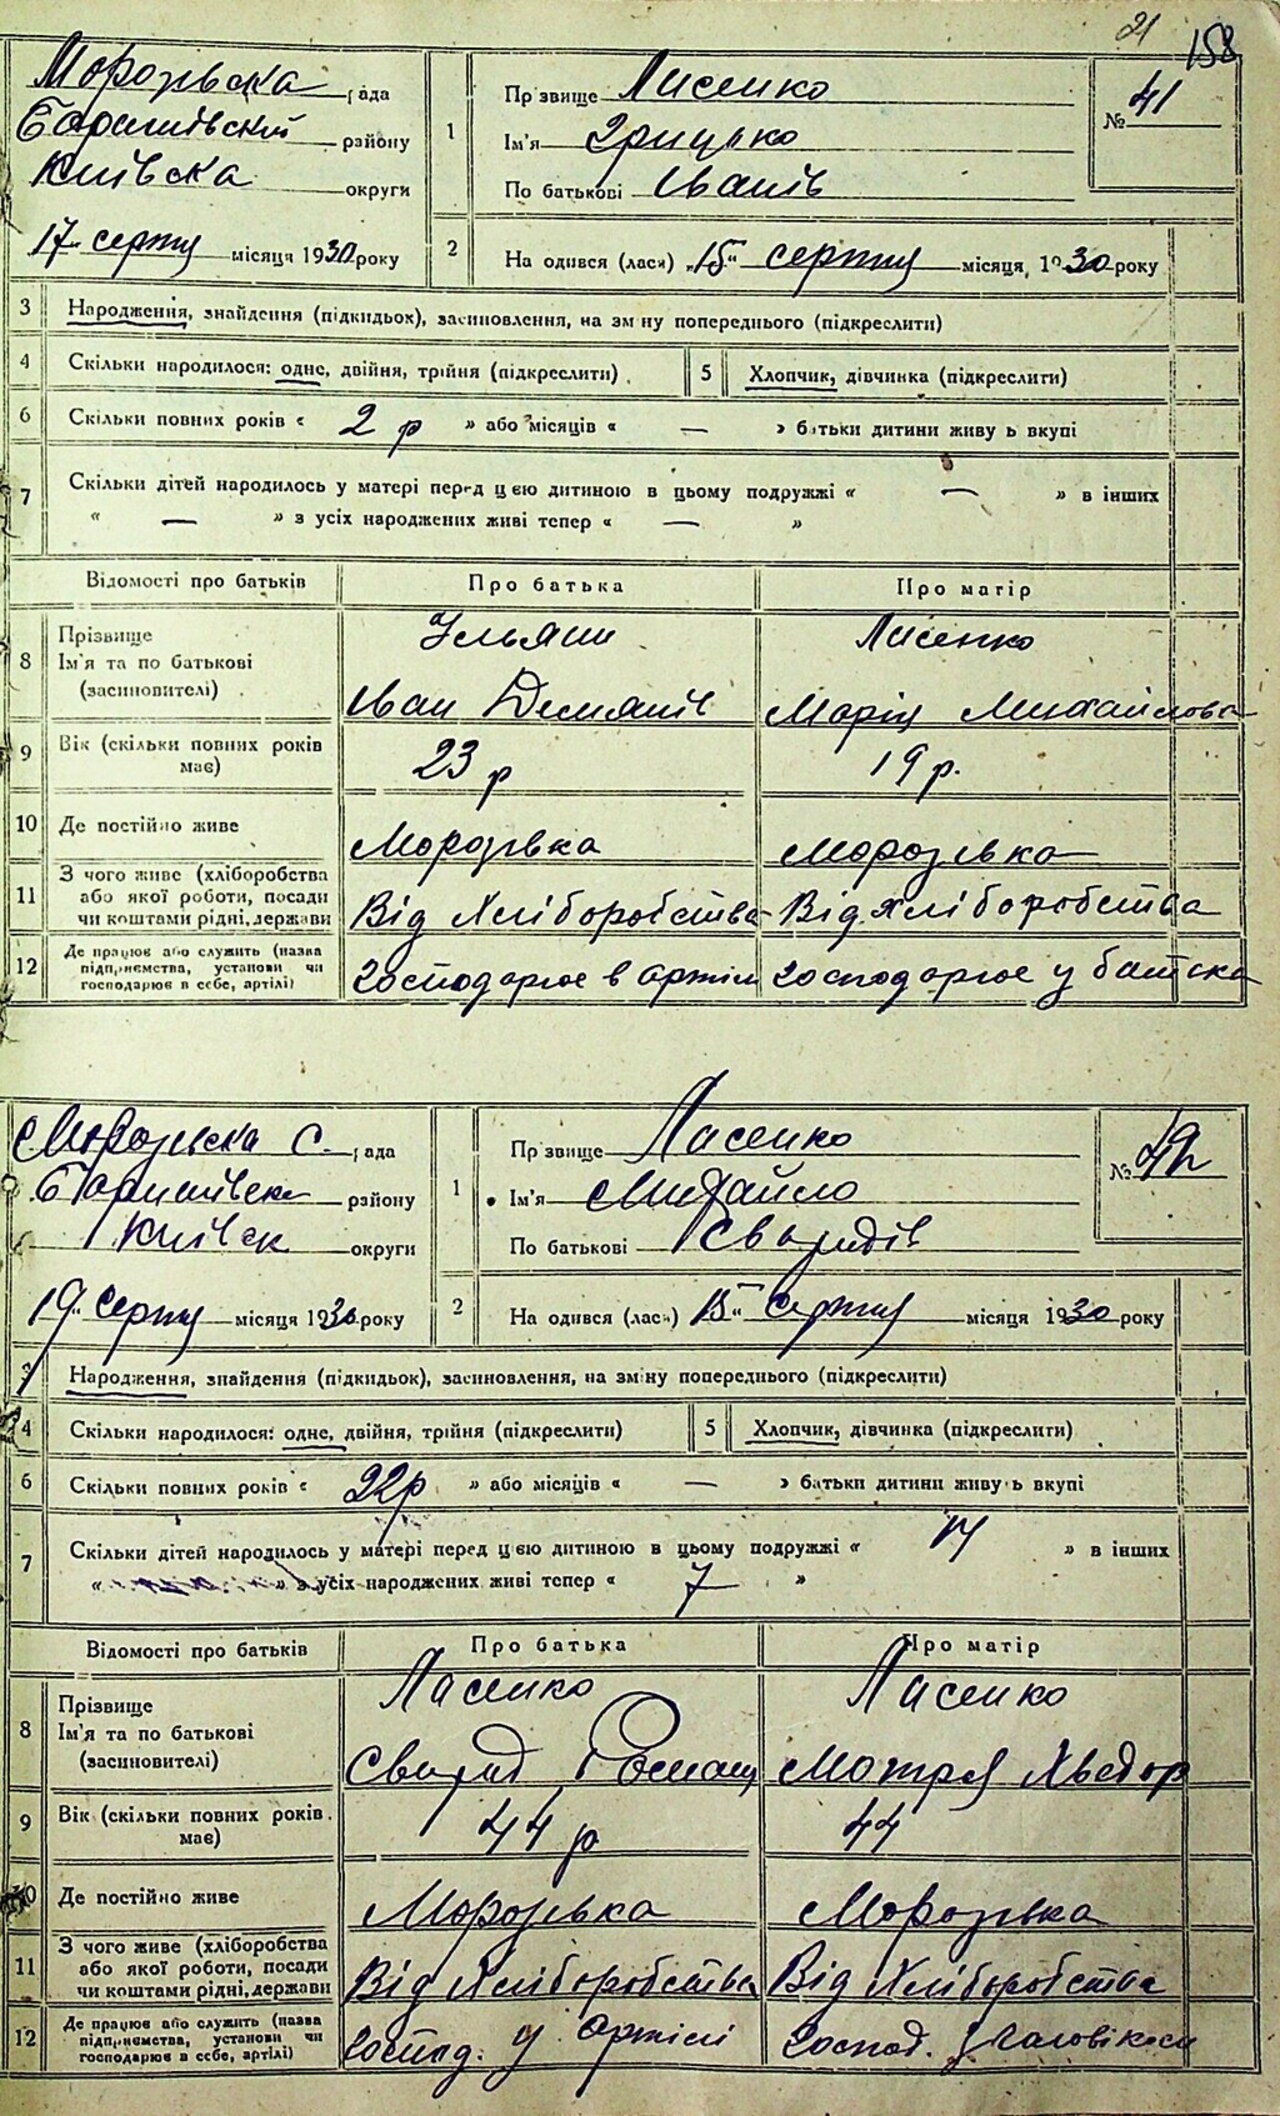 21 158
Морозівська рада
Баришівський району
Київська округи
17 серпня місяця 1930 року
1
Прізвище Лисенко
Ім'я Грицько
По батькові Іванів
№ 41
2
Народився (лась) „15" серпня місяця, 1930 року
3 Народження, знайдення (підкидьок), засиновлення, на зміну попереднього (підкреслити)
4 Скільки народилося: одне, двійня, трійня (підкреслити) 5 Хлопчик, дівчинка (підкреслити)
6 Скільки повних років « 2 р » або місяців « — » батьки дитини живуть вкупі
7 Скільки дітей народилось у матері перед цією дитиною в цьому подружжі « — » в інших
« — » з усіх народжених живі тепер « — »
Відомості про батьків Про батька Про матір
8 Прізвище
Ім'я та по батькові
(засиновителі)
Ульян Лисенко
Іван Демянів Марія Михайлова
9 Вік (скільки повних років
має)
23 р 19 р.
10 Де постійно живе Морозівка Морозівка
11 З чого живе (хліборобства
або якої роботи, посади
чи коштами рідні, держави
Від Хліборобства Від хліборобства
12 Де працює або служить (назва
підприємства, установи чи
господарює в себе, артілі)
господарює в артіли господарює у батька
Морозівська С. рада
Баришівськ району
Київськ округи
19 серпня місяця 1930 року
1
Прізвище Ласенко
Ім'я Михайло
По батькові Свиридів
№ 42
2
Народився (лась) 15" серпня місяця 1930 року
3 Народження, знайдення (підкидьок), засиновлення, на зміну попереднього (підкреслити)
4 Скільки народилося: одне, двійня, трійня (підкреслити) 5 Хлопчик, дівчинка (підкреслити)
6 Скільки повних років « 22р » або місяців « — » батьки дитини живуть вкупі
7 Скільки дітей народилось у матері перед цією дитиною в цьому подружжі « » в інших
« » з усіх народжених живі тепер « 7 »
Відомості про батьків Про батька Про матір
8 Прізвище
Ім'я та по батькові
(засиновителі)
Ласенко Ласенко
Свирид Мотря Хведор
9 Вік (скільки повних років
має)
44 р 44
10 Де постійно живе Морозівка Морозівка
11 З чого живе (хліборобства
або якої роботи, посади
чи коштами рідні, держави
Від Хліборобства Від Хліборобства
12 Де працює або служить (назва
підприємства, установи чи
господарює в себе, артілі)
господ. у артілі господ.